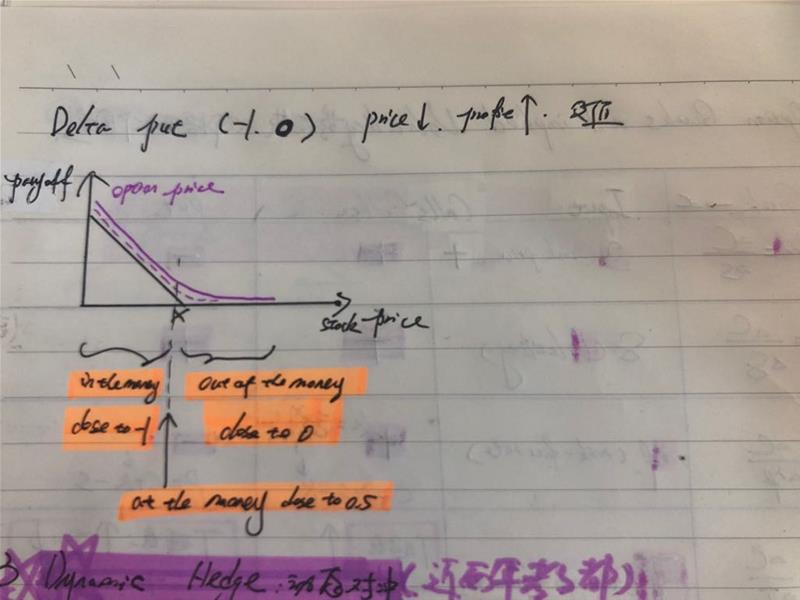 Delta put (-1. 0) price↓. profit↑.
payoff
option price
stock price
K
in the money out of the money
close to -1 close to 0
at the money close to 0.5
3 Dynamic Hedge 动态对冲 (近两年考了都)